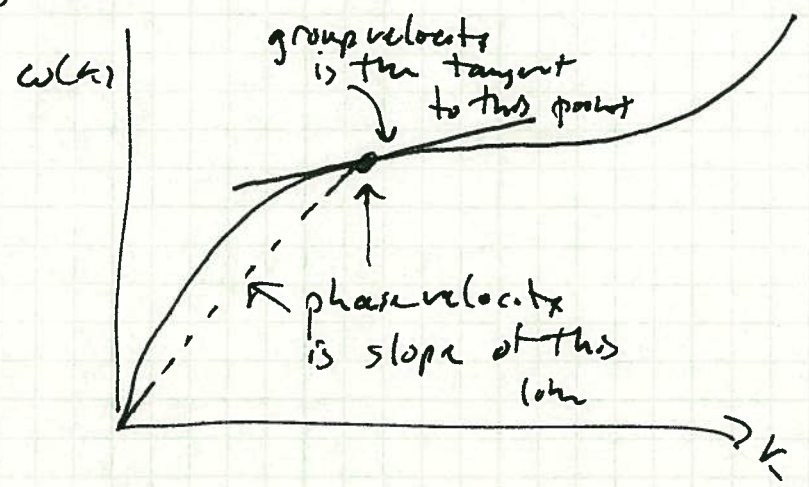 ω(k)
group velocity
is the tangent
to this point
phase velocity
is slope of this
line
k